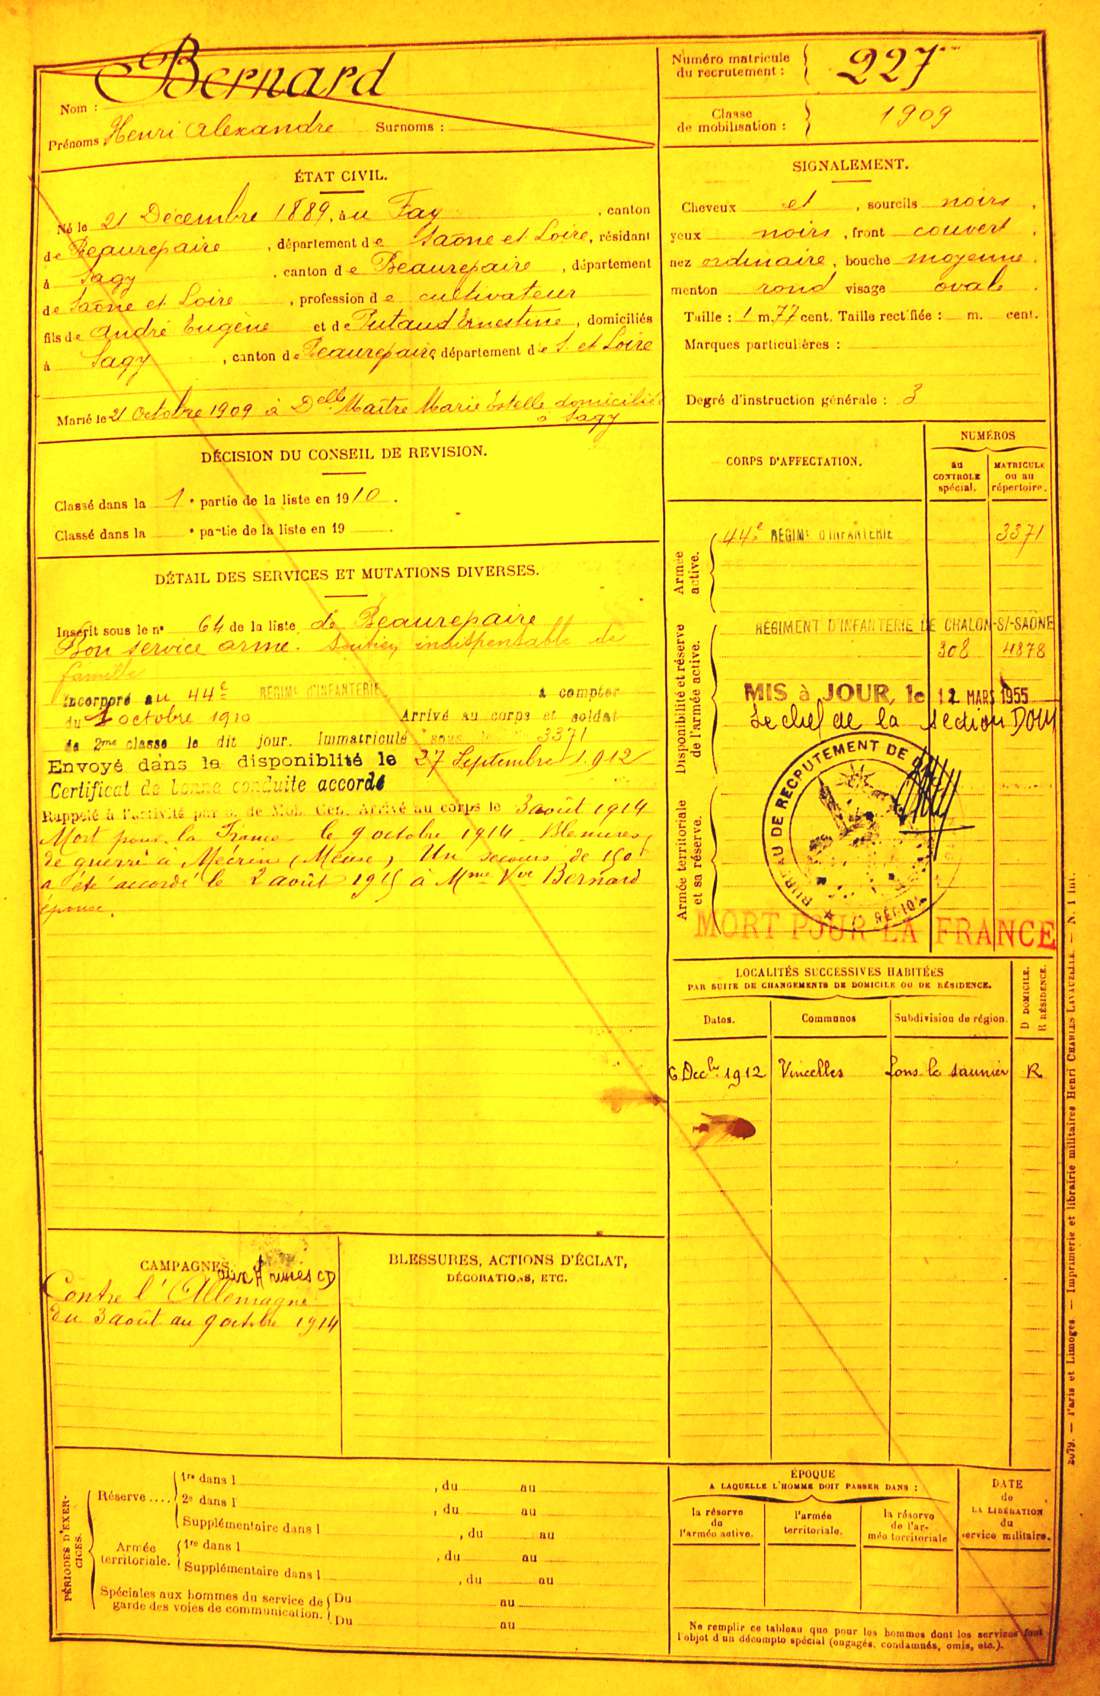 Nom : Bernard
Prénoms Henri Alexandre Surnoms :
Numéro matricule du recrutement : 227
Classe de mobilisation : 1909
ÉTAT CIVIL.
Né le 21 Décembre 1889, au Fay, canton
de Beaurepaire, département de Saône et Loire, résidant
à Sagy, canton de Beaurepaire, département
de Saône et Loire, profession de cultivateur
fils de André Eugène et de Putaud Ernestine, domiciliés
à Sagy, canton de Beaurepaire département de S. et Loire
Marié le 21 Octobre 1909 à Delle Maître Marie Estelle domiciliée
à Sagy
SIGNALEMENT.
Cheveux et, sourcils noirs,
yeux noirs, front couvert,
nez ordinaire, bouche moyenne,
menton rond visage ovale.
Taille : 1 m. 77 cent. Taille rectifiée : m. cent.
Marques particulières :
Degré d'instruction générale : 3
DÉCISION DU CONSEIL DE REVISION.
Classé dans la 1e partie de la liste en 1910.
Classé dans la e partie de la liste en 19 .
DÉTAIL DES SERVICES ET MUTATIONS DIVERSES.
Inscrit sous le n° 64 de la liste de Beaurepaire
Bon service armé. Soutien indispensable de
famille
Incorporé au 44e RÉGIMt D'INFANTERIE à compter
du 1 octobre 1910 Arrivé au corps et soldat
de 2me classe le dit jour. Immatriculé sous le n° 3371
Envoyé dans la disponiblité le 27 Septembre 1912
Certificat de bonne conduite accordé
Rappelé à l'activité par o. de Mob. Gén. Arrivé au corps le 3 août 1914
Mort pour la France le 9 octobre 1914 Blessures
de guerre à Mécrin (Meuse) Un secours de 150f
a été accordé le 2 août 1915 à Mme Vve Bernard
épouse.
CORPS D'AFFECTATION.
NUMÉROS
au CONTROLE spécial.
MATRICULE ou au répertoire.
Armée active.
44e RÉGIMt D'INFANTERIE 3371
Disponibilité et réserve de l'armée active.
RÉGIMENT D'INFANTERIE DE CHALON-S/-SAÔNE
308 4378
MIS à JOUR, le 12 MARS 1955
Le chef de la section DOM
Armée territoriale et sa réserve.
BUREAU DE RECRUTEMENT DE
RÉGION
MORT POUR LA FRANCE
LOCALITÉS SUCCESSIVES HABITÉES
PAR SUITE DE CHANGEMENTS DE DOMICILE OU DE RÉSIDENCE.
Dates. Communes Subdivision de région. D DOMICILE. R RÉSIDENCE.
6 Decbre 1912 Vincelles Lons le Saunier R
CAMPAGNES
aux Armées CD
Contre l'Allemagne
Du 3 août au 9 octobre 1914
BLESSURES, ACTIONS D'ÉCLAT,
DÉCORATIONS, ETC.
PÉRIODES D'EXERCICES.
Réserve ....
1re dans l , du au
2e dans l , du au
Supplémentaire dans l , du au
Armée territoriale.
1re dans l , du au
Supplémentaire dans l , du au
Spéciales aux hommes du service de garde des voies de communication.
Du au
Du au
ÉPOQUE
A LAQUELLE L'HOMME DOIT PASSER DANS :
la réserve de l'armée active.
l'armée territoriale.
la réserve de l'armée territoriale
DATE de LA LIBÉRATION du service militaire.
Ne remplir ce tableau que pour les hommes dont les services font
l'objet d'un décompte spécial (engagés, condamnés, omis, etc.).
2079. — Paris et Limoges. — Imprimerie et librairie militaires Henri CHARLES-LAVAUZELLE. — N. 1 int.